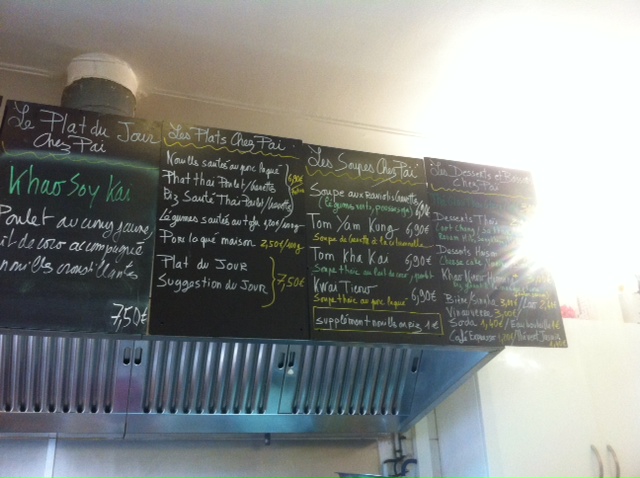 Le Plat du Jour
Chez Pai
Khao Soy Kai
Poulet au curry jaune
lait de coco accompagné
nouilles croustillantes
7,50€
Les Plats Chez Pai
Nouilles sautées au porc laqué
Phat thai Poulet/Crevettes
6,90€
Riz Sauté Thai Poulet/Crevettes
Légumes sautés au tofu
Porc laqué maison 2,50€/100g
Plat du Jour
Suggestion du Jour
7,50€
Les Soupes Chez Pai
Soupe aux Raviolis Crevettes
6,90€
Tom Yam Kung 6,90€
Soupe de Crevette à la citronnelle
Tom Kha Kai 6,90€
Soupe thaie au lait de coco, poulet
Kwai Tieuo
6,90€
Soupe thaie au porc laqué
supplément nouilles ou riz 1€
Les Desserts et
Chez Pai
Desserts Thais
Desserts Maison
Cheese cake
Bière/Singha 3,00€
Vin au verre 3,00€
Soda 1,40€
Café Expresso